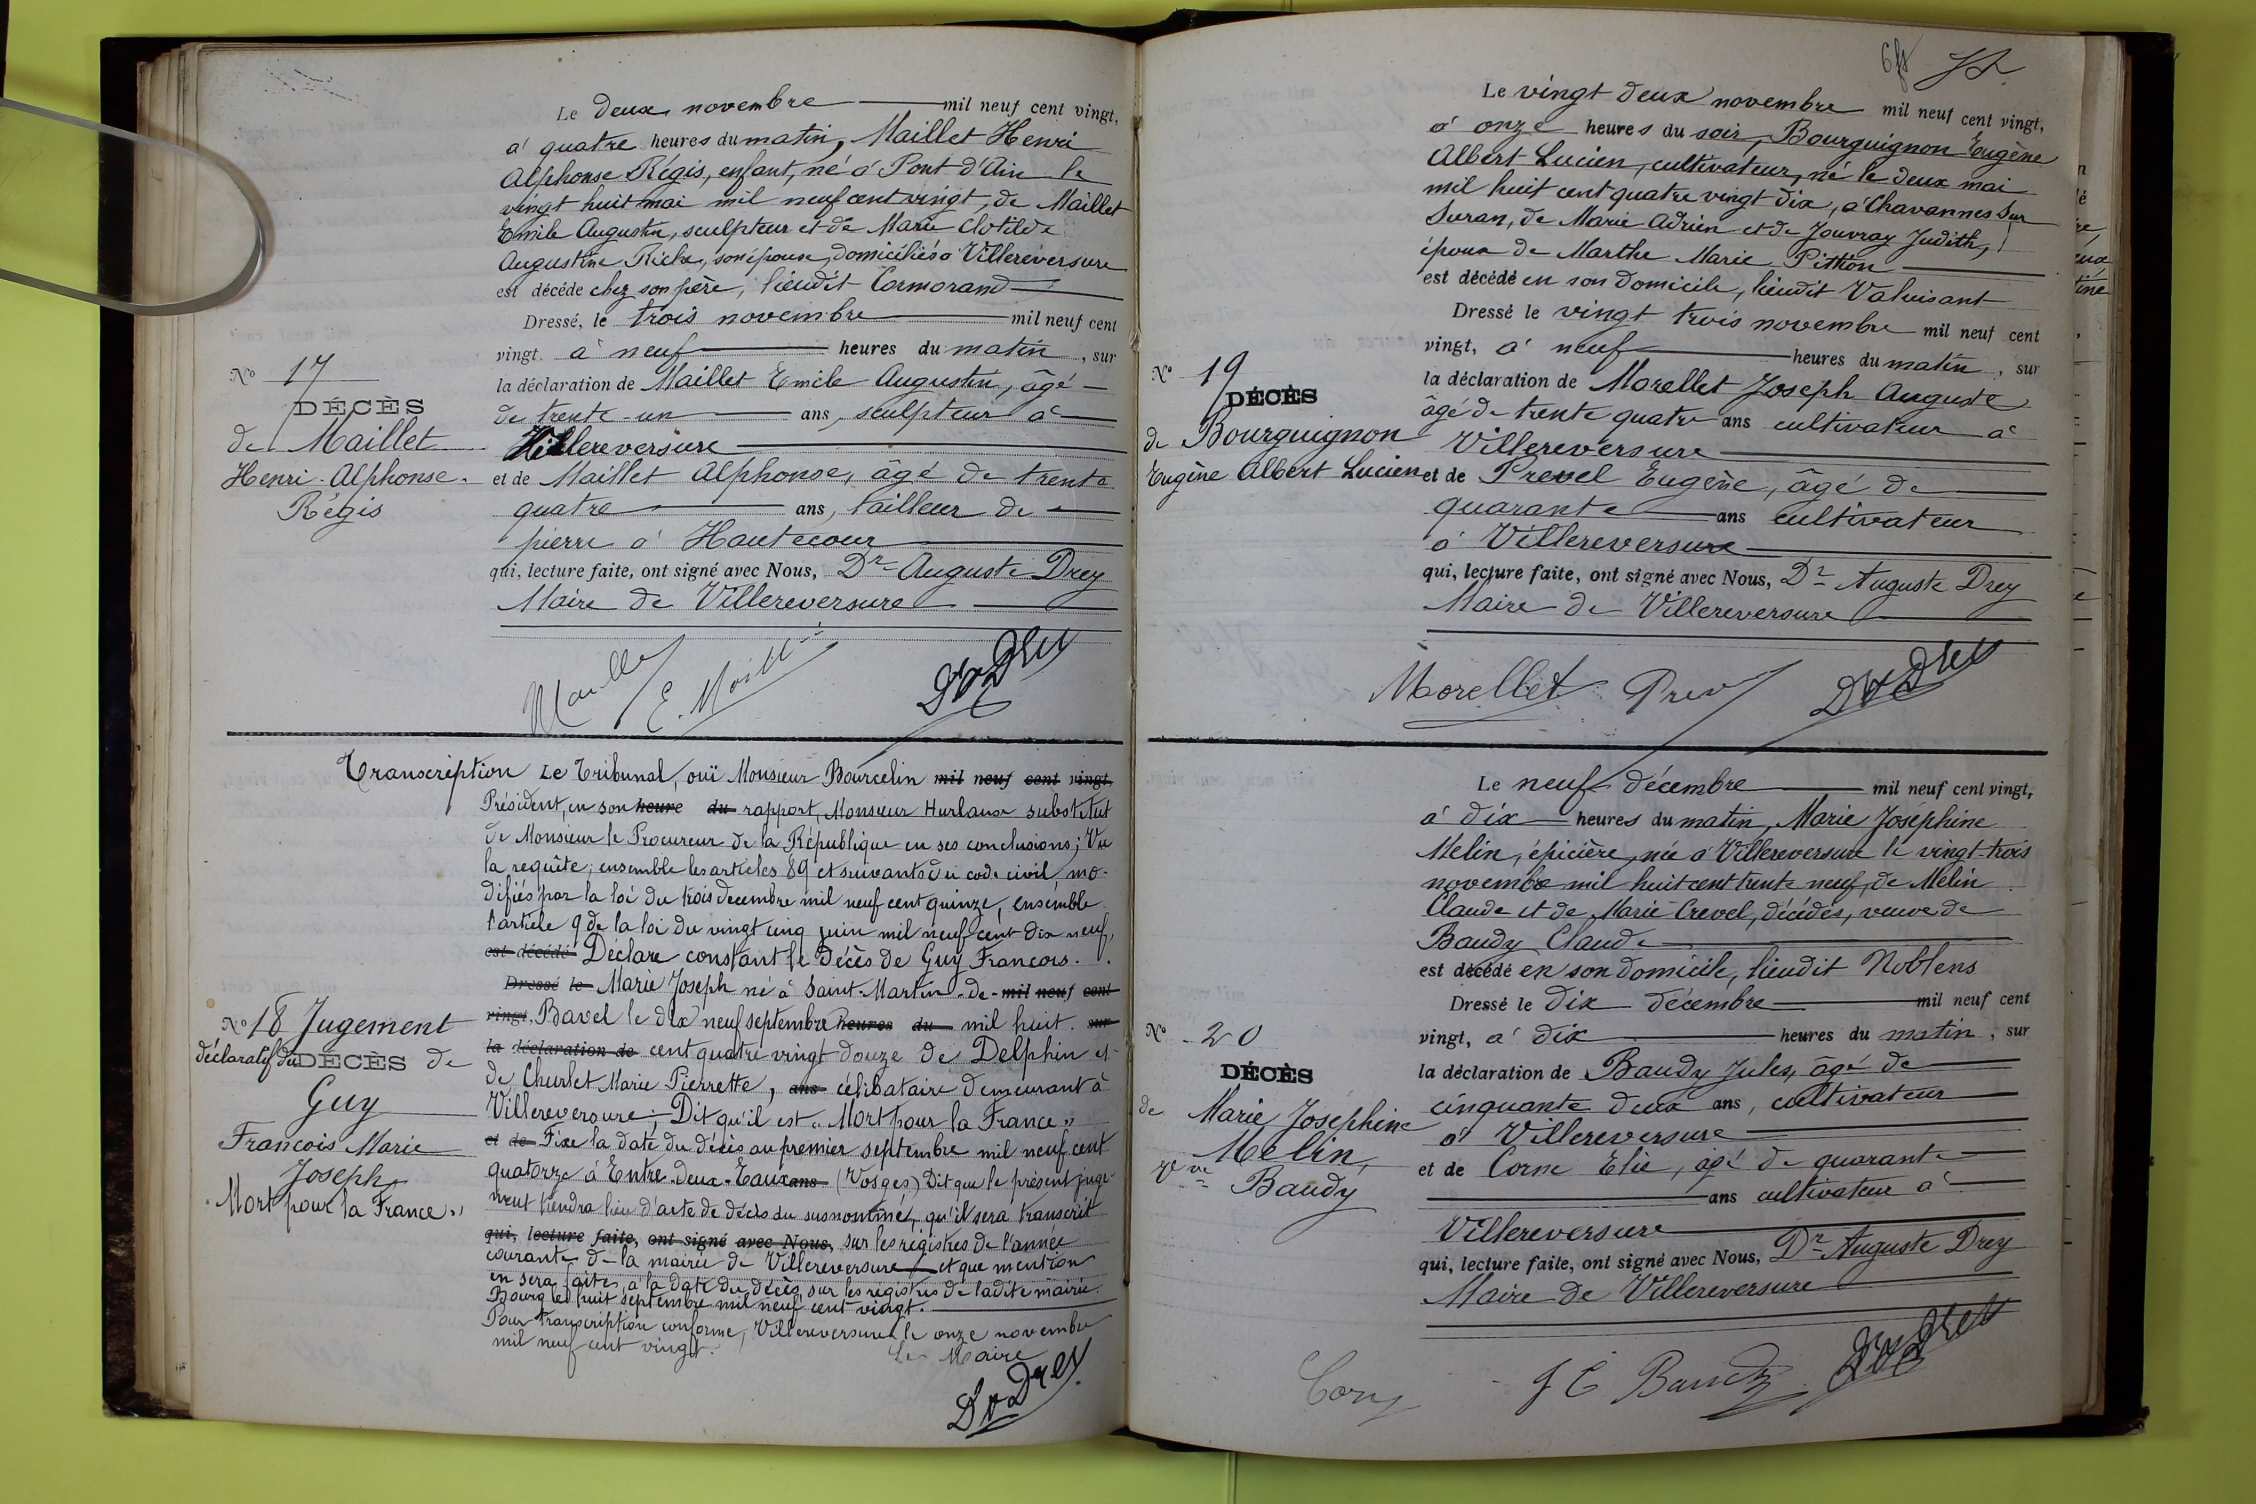 Le deux novembre mil neuf cent vingt,
à quatre heures du matin, Maillet Henri
Alphonse Régis, enfant, né à Pont d'Ain le
vingt huit mai mil neuf cent vingt, de Maillet
Emile Augustin, sculpteur et de Marie Clotilde
Augustine Riche, son épouse, domiciliés à Villereversure
est décédé chez son père, lieudit Cormorand
Dressé, le trois novembre mil neuf cent
vingt à neuf heures du matin, sur
la déclaration de Maillet Emile Augustin, âgé
de trente-un ans, sculpteur à
Villereversure
et de Maillet Alphonse, âgé de trente
quatre ans, tailleur de
pierre à Hautecour
qui, lecture faite, ont signé avec Nous, Dr Auguste Drey
Maire de Villereversure
No 17
DÉCÈS
de Maillet
Henri Alphonse
Régis
E. Maillet
Dr Drey
Transcription Le Tribunal, ouï Monsieur Bourcelin mil neuf cent vingt,
Président, en son heure du rapport, Monsieur Hurlaux substitut
de Monsieur le Procureur de la République en ses conclusions; Vu
la requête; ensemble les articles 89 et suivants du code civil, mo-
difiés par la loi du trois decembre mil neuf cent quinze, ensemble
l'article 9 de la loi du vingt cinq juin mil neuf cent dix neuf,
est décédé Déclare constant le Décès de Guy François.
Dressé le Marie Joseph né à Saint-Martin-de- mil neuf cent
vingt, Bavel le dix neuf septembre heures du mil huit sur
la déclaration de cent quatre vingt douze de Delphin et
de Churlet Marie Pierrette, ans célibataire demeurant à
Villereversure; Dit qu'il est "Mort pour la France"
et de Fixe la date du décès au premier septembre mil neuf cent
quatorze à Entre-deux-Eaux ans (Vosges) Dit que le présent juge-
ment tiendra lieu d'acte de décès du susnommé, qu'il sera transcrit
qui, lecture faite, ont signé avec Nous, sur les registres de l'année
courante de la mairie de Villereversure et que mention
en sera faite, à la date du décès, sur les registres de ladite mairie.
Bourg le huit septembre mil neuf cent vingt.
Pour transcription conforme, Villereversure le onze novembre
mil neuf cent vingt.
Le Maire
Dr Drey
No 18 Jugement
déclaratif du DÉCÈS de
Guy
François Marie
Joseph
"Mort pour la France"
Le vingt deux novembre mil neuf cent vingt,
à onze heures du soir, Bourguignon Eugène
Albert Lucien, cultivateur, né le deux mai
mil huit cent quatre vingt dix, à Chavannes sur
Suran, de Marie Adrien et de Jouvray Judith,
époux de Marthe Marie Pitthon
est décédé en son domicile, lieudit Valuisant
Dressé le vingt trois novembre mil neuf cent
vingt, à neuf heures du matin, sur
la déclaration de Morellet Joseph Auguste
âgé de trente quatre ans cultivateur à
Villereversure
et de Prevel Eugène, âgé de
quarante ans cultivateur
à Villereversure
qui, lecture faite, ont signé avec Nous, Dr Auguste Drey
Maire de Villereversure
No 19
DÉCÈS
de Bourguignon
Eugène Albert Lucien
Morellet
Dr Drey
Le neuf décembre mil neuf cent vingt,
à dix heures du matin, Marie Joséphine
Melin, épicière, née à Villereversure le vingt-trois
novembre mil huit cent trente neuf, de Melin
Claude et de Marie Crevel, décédés, veuve de
Baudy Claude
est décédé en son domicile, lieudit Noblens
Dressé le dix décembre mil neuf cent
vingt, à dix heures du matin, sur
la déclaration de Baudy Jules, âgé de
cinquante deux ans, cultivateur
à Villereversure
et de Corne Elie, âgé de quarante
ans cultivateur à
Villereversure
qui, lecture faite, ont signé avec Nous, Dr Auguste Drey
Maire de Villereversure
No 20
DÉCÈS
de Marie Joséphine
Melin,
Vve Baudy
Dr Drey